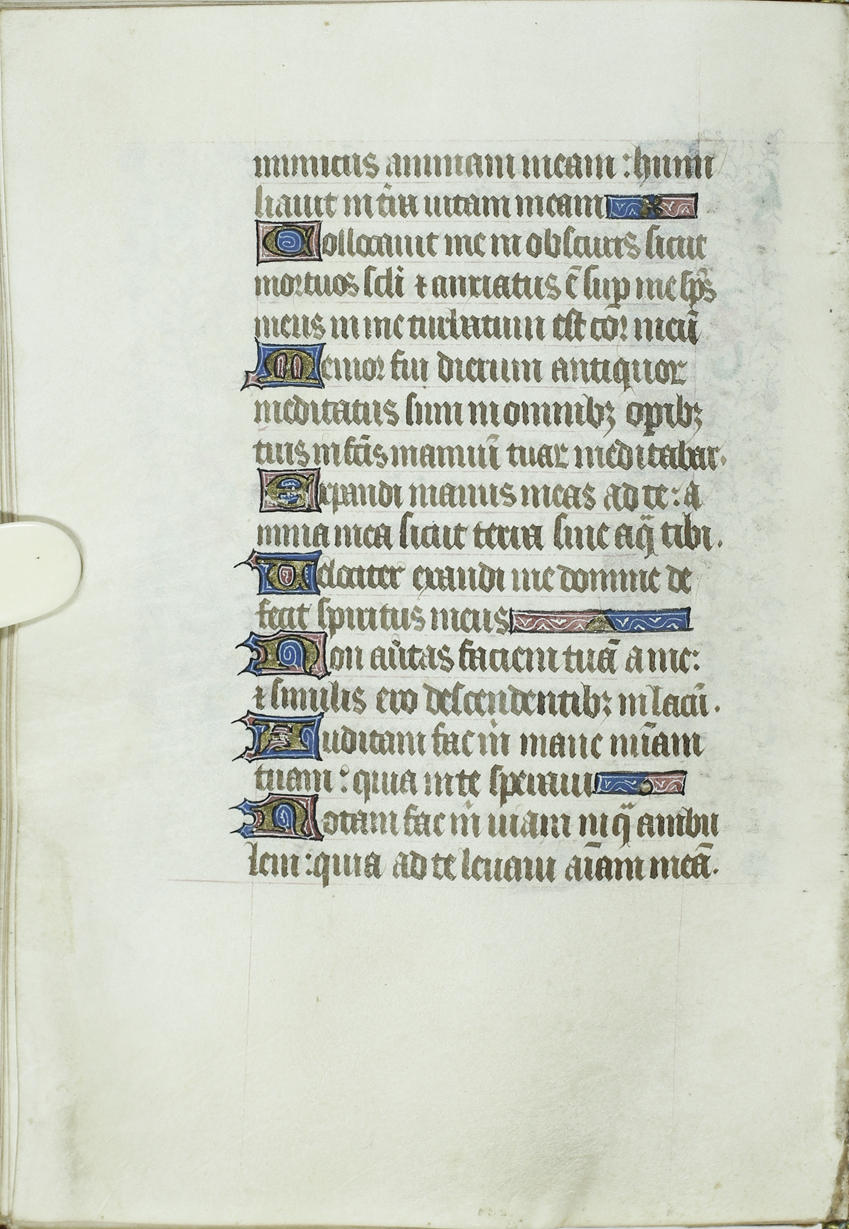 inimicus animam meam : humi
liauit in t̄ra uitam meam
Collocauit me in obscuris sicut
mortuos scli ⁊ anxiatus ē sup me sp̄s
meus in me turbatum est cor meū
Memor fui dierum antiquoꝝ
meditatus sum in omnibꝫ opibꝫ
tuis in fc̄is manuū tuaꝝ meditabar.
Expandi manus meas ad te : a
nima mea sicut terra sine aq̄ tibi.
Uelociter exaudi me domine de
fecit spiritus meus
Non au̇tas faciem tuā a me :
⁊ similis ero descendentibꝫ in lacū.
Auditam fac m̄ mane mīam
tuam : quia in te speraui
Notam fac m̄ uiam in q̄ ambu
lem : quia ad te leuaui aīam meā.